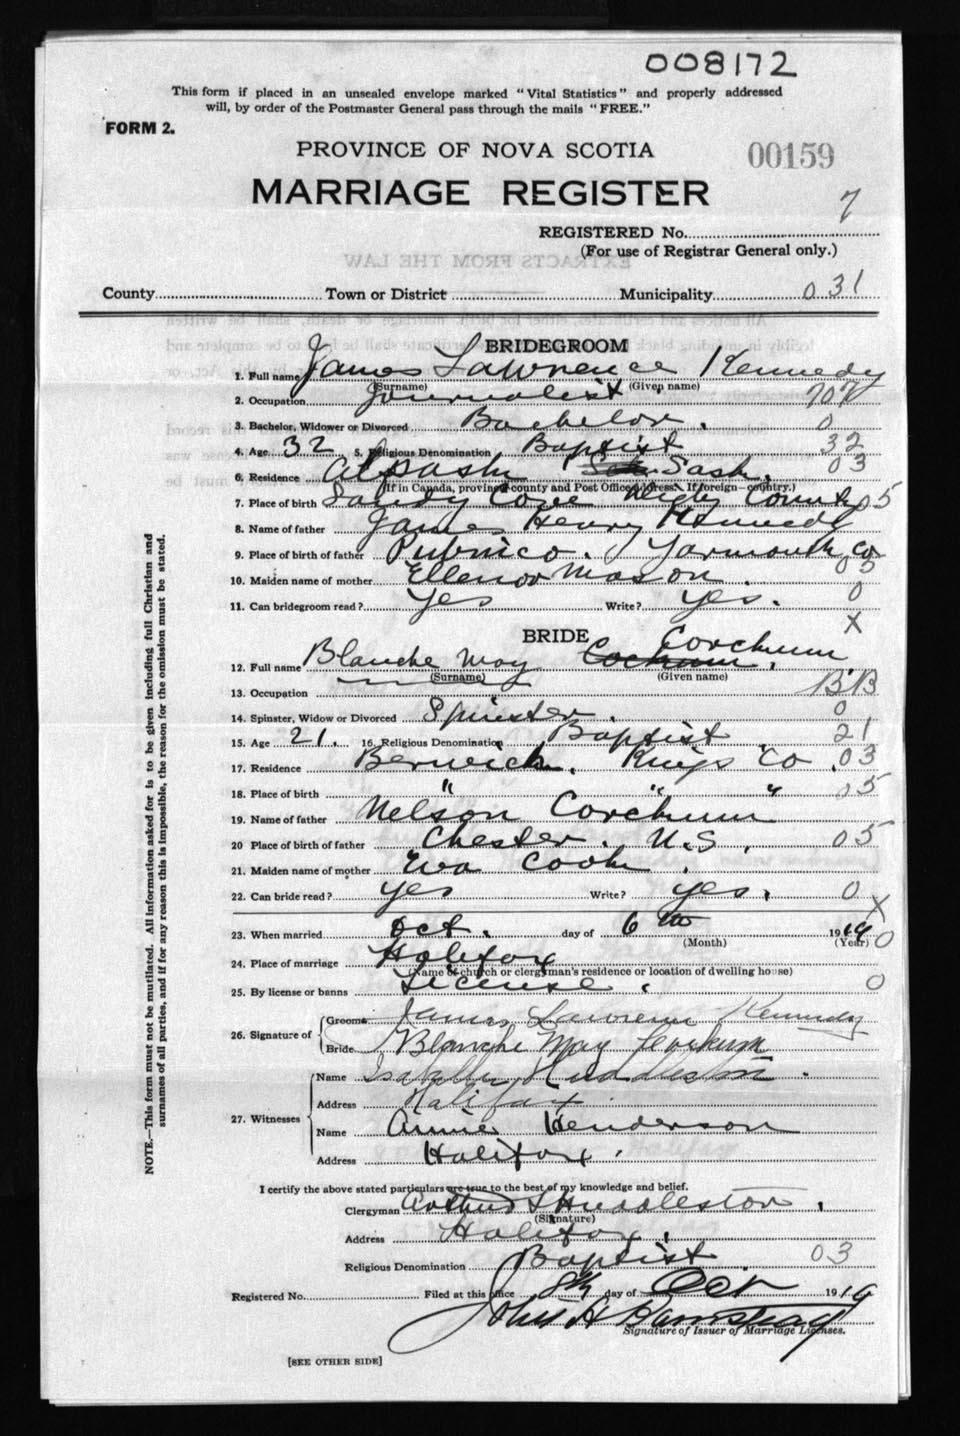 008172
This form if placed in an unsealed envelope marked "Vital Statistics" and properly addressed
will, by order of the Postmaster General pass through the mails "FREE."
FORM 2.
PROVINCE OF NOVA SCOTIA 00159
MARRIAGE REGISTER
7
REGISTERED No.
(For use of Registrar General only.)
EXTRACTS FROM THE LAW
County Town or District Municipality 031
BRIDEGROOM
1. Full name James Lawrence Kennedy
(Surname) (Given name)
2. Occupation Journalist
3. Bachelor, Widower or Divorced Bachelor. 0
4. Age 32 5. Religious Denomination Baptist 32
6. Residence Sask. 03
(If in Canada, province county and Post Office address. If foreign—country.)
7. Place of birth Sandy Cove Digby County 05
8. Name of father James Henry Kennedy
9. Place of birth of father Pubnico. Yarmouth Co 05
10. Maiden name of mother Ellenor Mason.
11. Can bridegroom read? Yes Write? yes. 0
X
BRIDE
12. Full name Blanche May Corchum
(Surname) (Given name)
13. Occupation
14. Spinster, Widow or Divorced Spinster. 0
15. Age 21. 16. Religious Denomination Baptist. 21
17. Residence Berwick. Kings Co. 03
18. Place of birth " " " 05
19. Name of father Nelson Corchum
20 Place of birth of father Chester. N.S. 05
21. Maiden name of mother Eva Cook.
22. Can bride read? yes Write? yes. 0
X
23. When married Oct. day of 6th 1919
(Month) (Year) 0
24. Place of marriage Halifax
(Name of church or clergyman's residence or location of dwelling house)
25. By license or banns License. 0
26. Signature of Groom James Lawrence Kennedy
Bride Blanche May Corkum
27. Witnesses Name Isabella Huddleston.
Address Halifax
Name Annie Henderson
Address Halifax.
I certify the above stated particulars are true to the best of my knowledge and belief.
Clergyman Arthur S Huddleston.
(Signature)
Address Halifax.
Religious Denomination Baptist 03
Registered No. Filed at this office 8th day of Oct 1919
John A
Signature of Issuer of Marriage Licenses.
[SEE OTHER SIDE]
NOTE.—This form must not be mutilated. All information asked for is to be given including full Christian and
surnames of all parties, and if for any reason this is impossible, the reason for the omission must be stated.